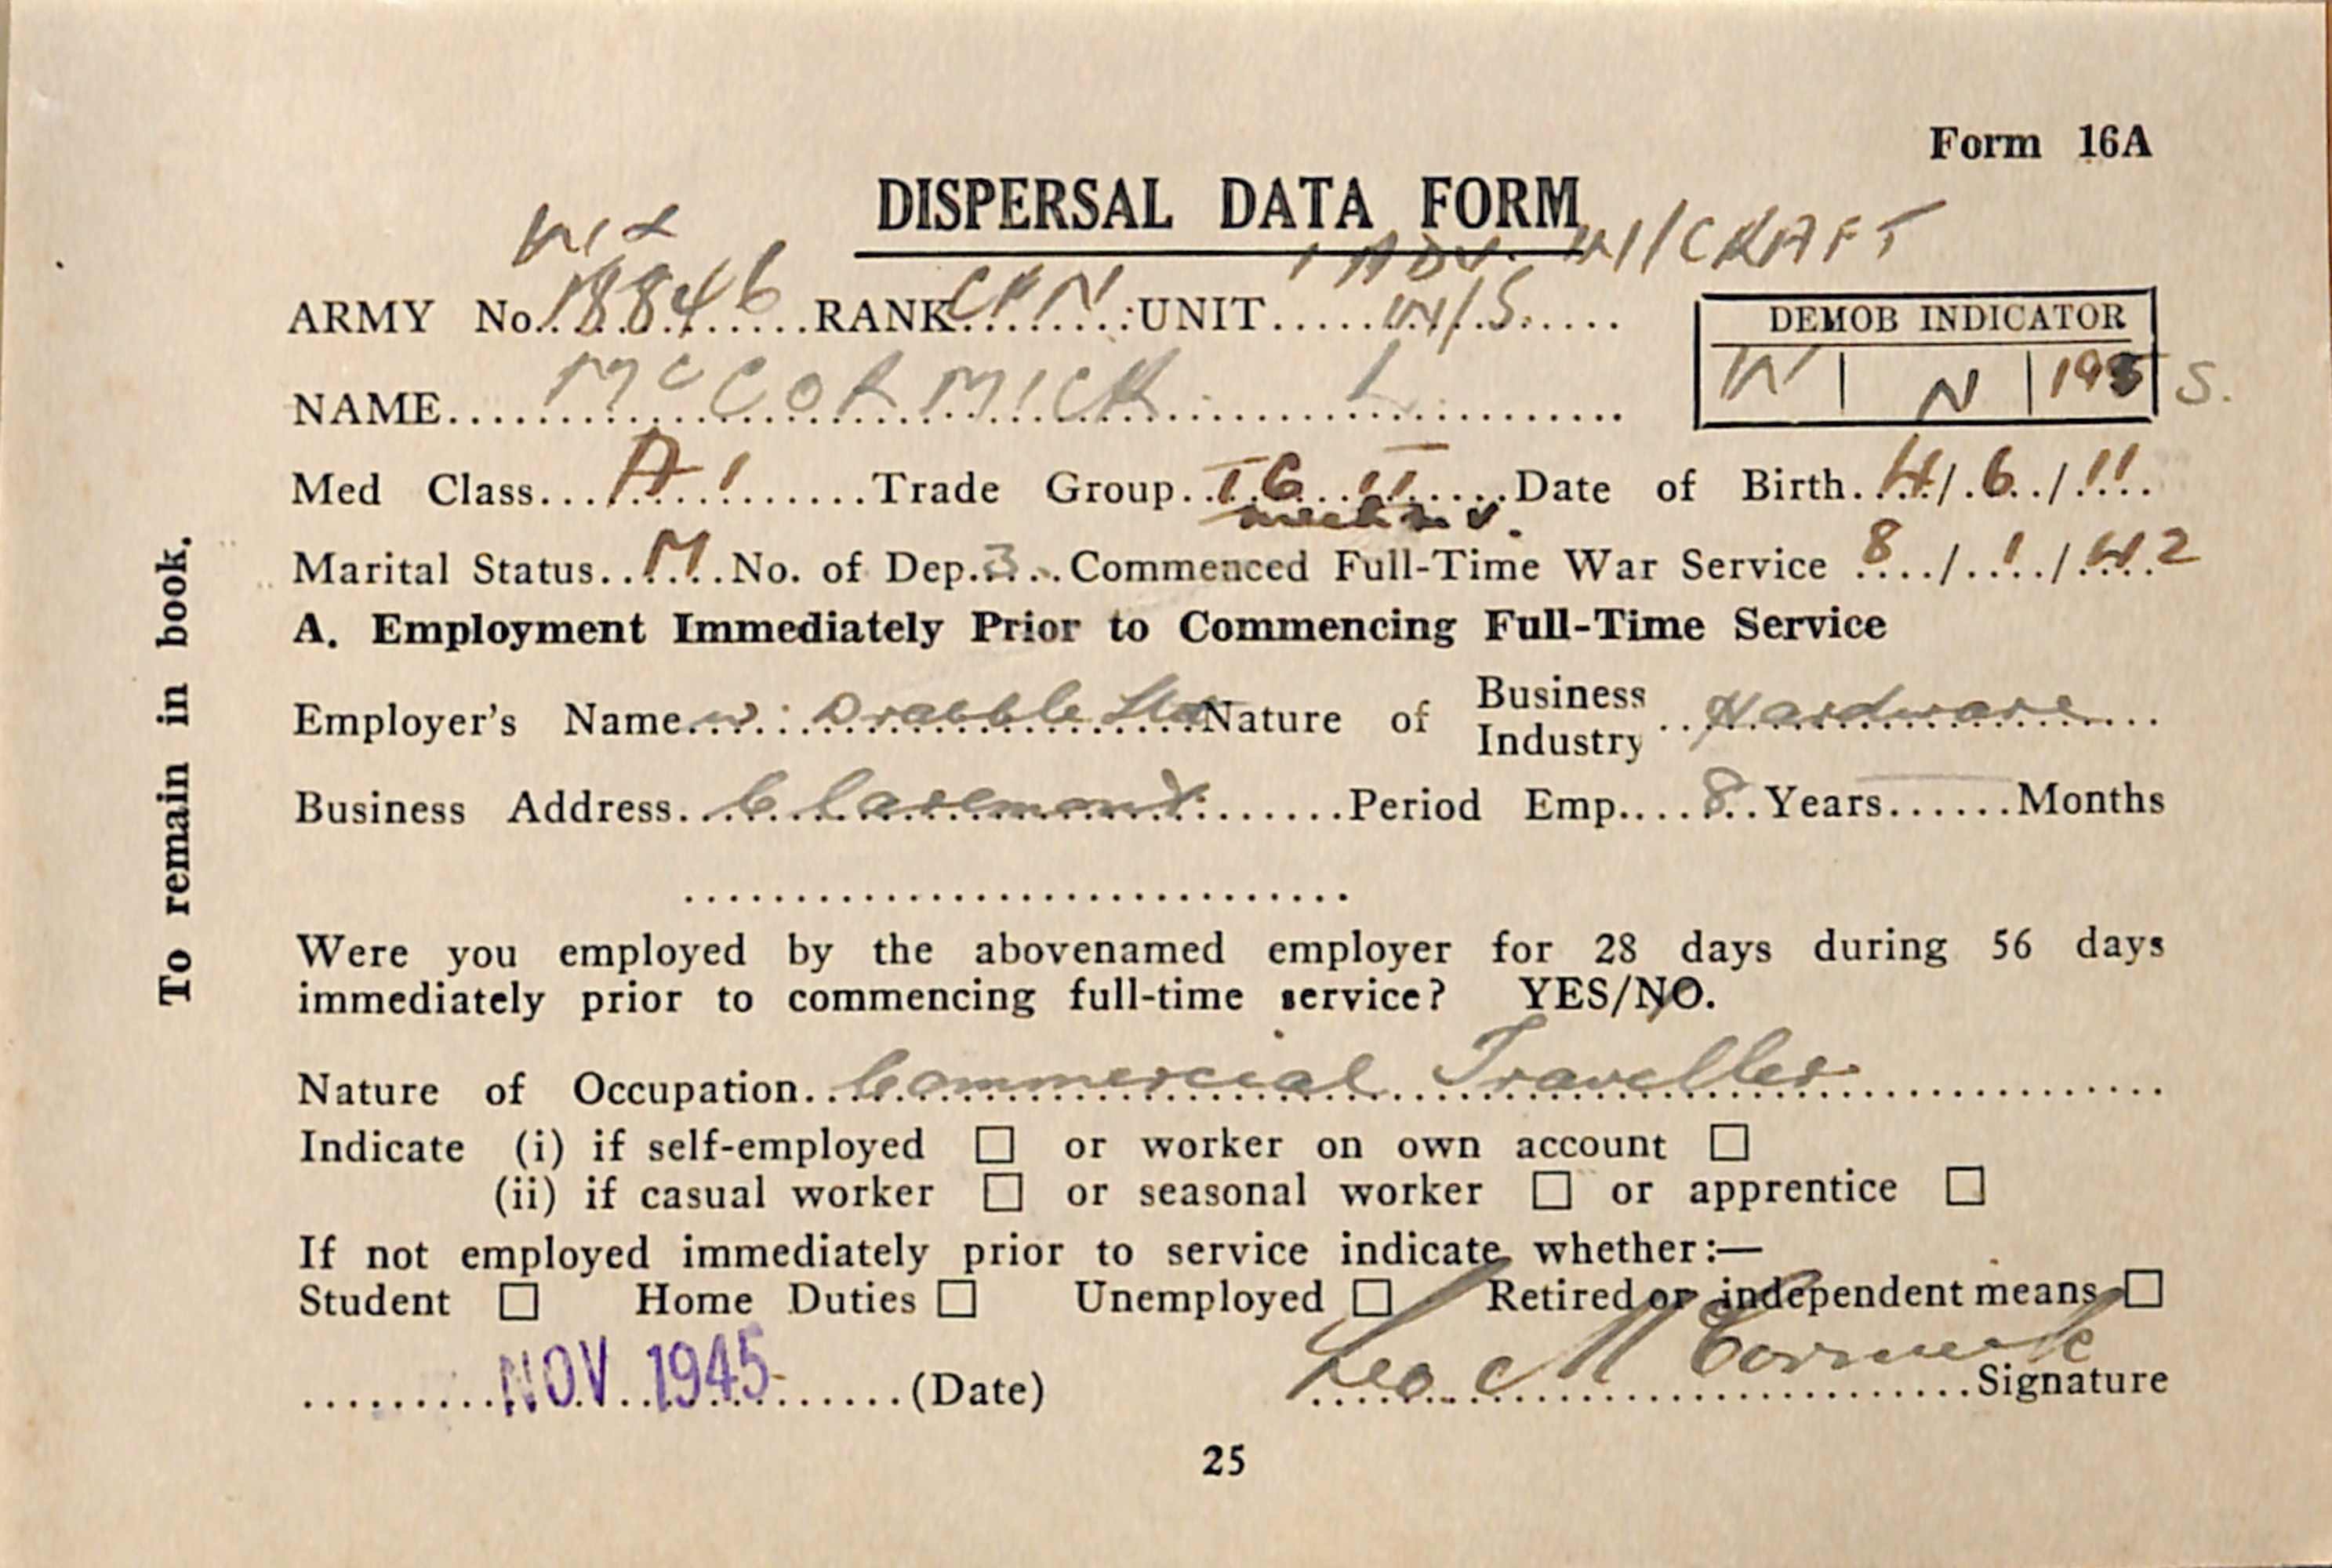 Form 16A
DISPERSAL DATA FORM
WX 1 ADV. W/CRAFT
ARMY No. 18846 RANK CFN UNIT W/S.
DEMOB INDICATOR
W N 195 S.
NAME McCORMICK L
Med Class A1 Trade Group TG II Date of Birth 4/6/11
mech m v.
Marital Status M No. of Dep. 3 Commenced Full-Time War Service 8/1/42
A. Employment Immediately Prior to Commencing Full-Time Service
Employer's Name W. Drabble Ltd Nature of Business Industry Hardware
Business Address Claremont Period Emp. 8 Years Months
Were you employed by the abovenamed employer for 28 days during 56 days
immediately prior to commencing full-time service? YES/NO.
Nature of Occupation Commercial Traveller
Indicate (i) if self-employed □ or worker on own account □
(ii) if casual worker □ or seasonal worker □ or apprentice □
If not employed immediately prior to service indicate whether:—
Student □ Home Duties □ Unemployed □ Retired or independent means □
NOV 1945 (Date) Leo McCormick Signature
25
To remain in book.